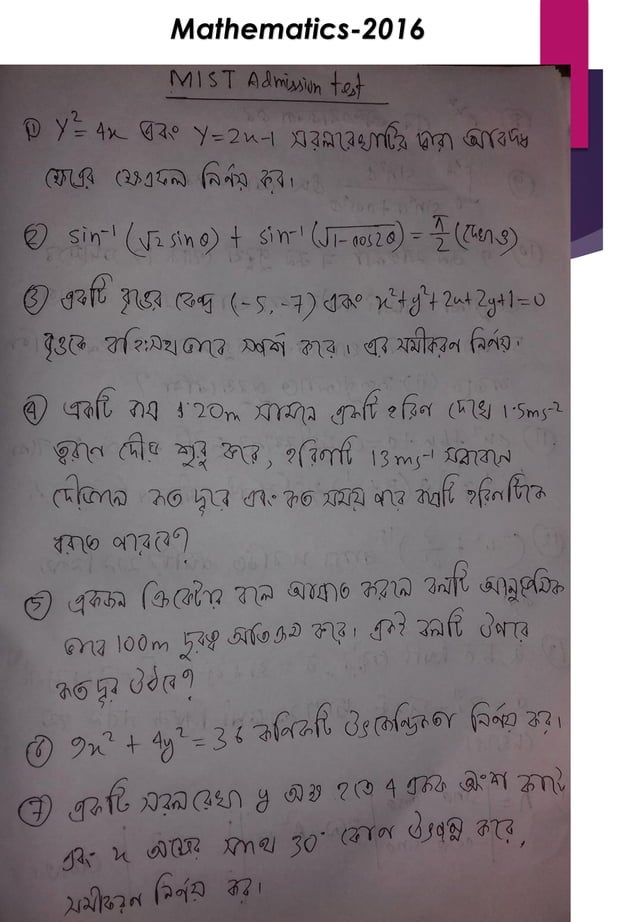 Mathematics-2016
MIST Admission test
① y² = 4x এবং y = 2x-1 সরলরেখাটির দ্বারা আবদ্ধ
ক্ষেত্রের ক্ষেত্রফল নির্ণয় কর।
② sin⁻¹ (√2 sin θ) + sin⁻¹ (√1-cos2θ) = π/2 (দেখাও)
③ একটি বৃত্তের কেন্দ্র (-5, -7) এবং x²+y²+2x+2y+1=0
বৃত্তকে বহিঃস্থভাবে স্পর্শ করে। এর সমীকরণ নির্ণয়।
④ একটি বাঘ 120m সামনে একটি হরিণ দেখে 1.5ms⁻²
ত্বরণে দৌড় শুরু করে, হরিণটি 13ms⁻¹ সমবেগে
দৌড়ালে কত দূরে এবং কত সময় পরে বাঘটি হরিণটিকে
ধরতে পারবে?
⑤ একজন ক্রিকেটার বলে আঘাত করলে বলটি আনুভূমিক
ভাবে 100m দূরত্ব অতিক্রম করে। একই বলটি উপরে
কত দূর উঠবে?
⑥ 9x² + 4y² = 36 কণিকটি উৎকেন্দ্রিকতা নির্ণয় কর।
⑦ একটি সরলরেখা y অক্ষ হতে 4 একক অংশ কাটে
এবং x অক্ষের সাথে 30° কোণ উৎপন্ন করে,
সমীকরণ নির্ণয় কর।